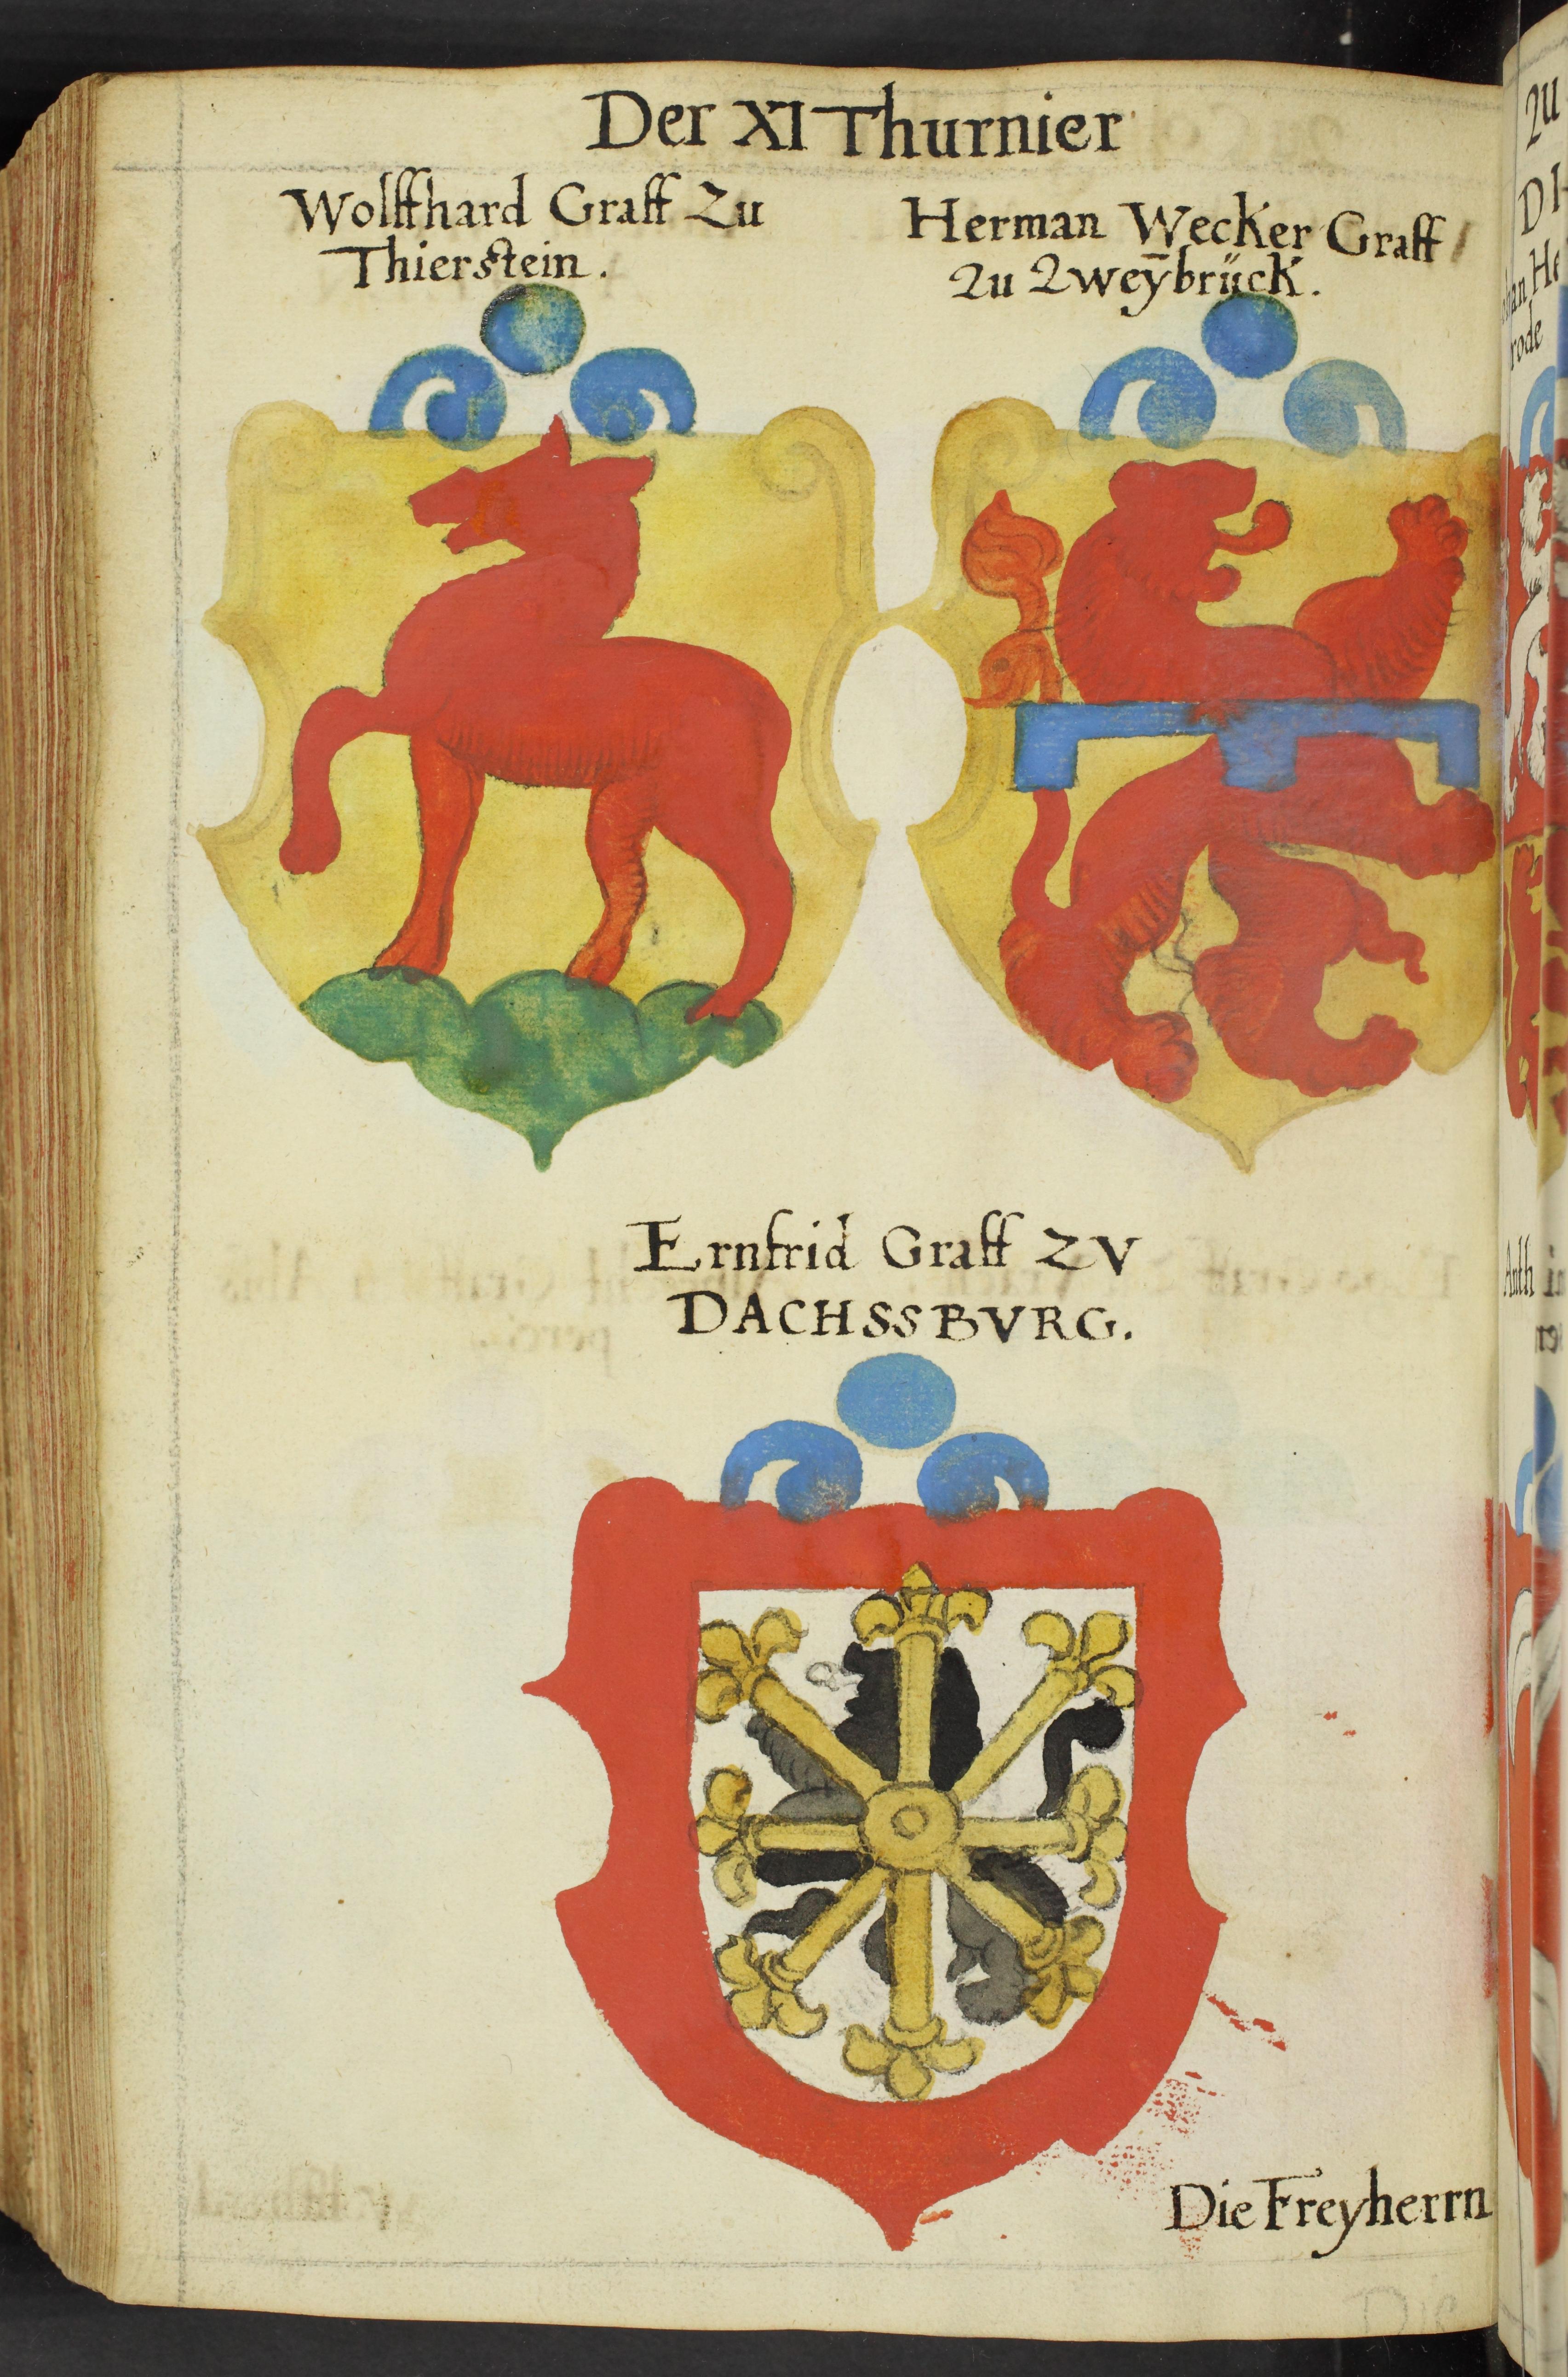 Der XI Thurnier
Wolffhard Graff Zu
Thierstein.
Herman Wecker Graff
Zu Zweÿbrück.
Ernfrid Graff ZV
DACHSSBVRG.
Die Freyherrn
Die
Zu
DI
rode